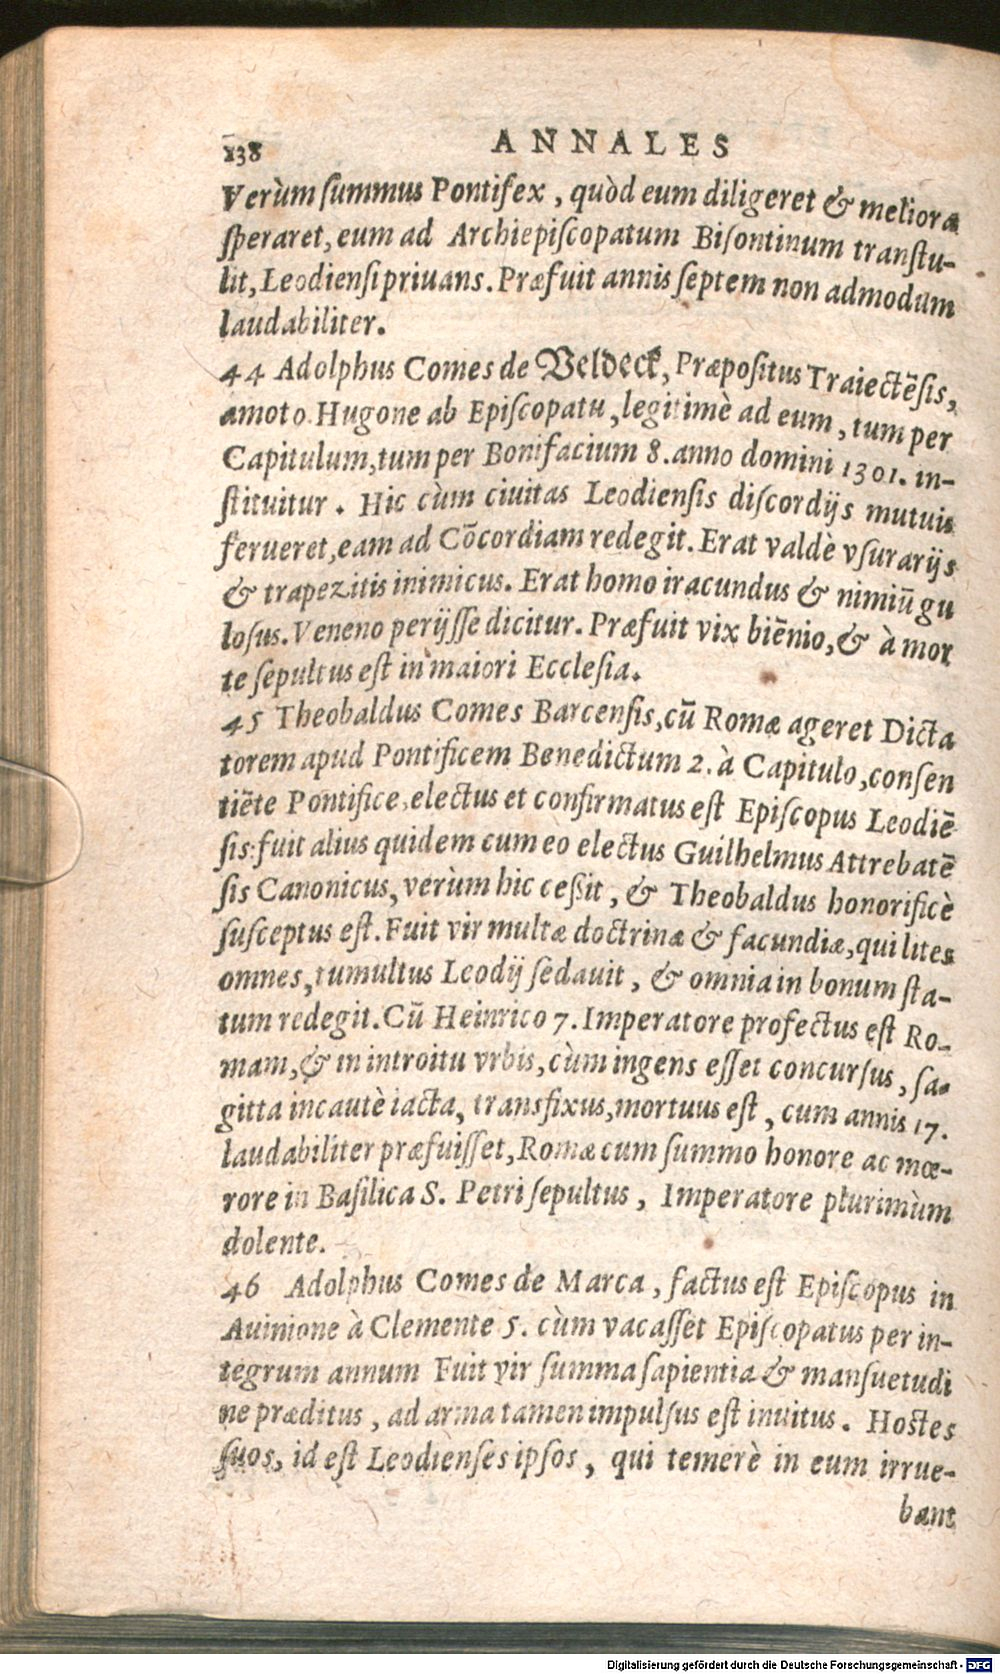 138 ANNALES
Verùm summus Pontifex, quòd eum diligeret & meliora
speraret, eum ad Archiepiscopatum Bisontinum transtu-
lit, Leodiensi priuans. Præfuit annis septem non admodum
laudabiliter.
44 Adolphus Comes de Veldeck, Præpositus Traiectēsis,
amoto Hugone ab Episcopatu, legitimè ad eum, tum per
Capitulum, tum per Bonifacium 8. anno domini 1301. in-
stituitur. Hic cùm ciuitas Leodiensis discordijs mutuis
ferueret, eam ad Cōcordiam redegit. Erat valdè vsurarijs
& trapezitis inimicus. Erat homo iracundus & nimiū gu
losus. Veneno perijsse dicitur. Præfuit vix biēnio, & à mor
te sepultus est in maiori Ecclesia.
45 Theobaldus Comes Barcensis, cū Romæ ageret Dicta
torem apud Pontificem Benedictum 2. à Capitulo, consen
tiēte Pontifice, electus et confirmatus est Episcopus Leodiē
sis: fuit alius quidem cum eo electus Guilhelmus Attrebatē
sis Canonicus, verùm hic cessit, & Theobaldus honorificè
susceptus est. Fuit vir multæ doctrinæ & facundiæ, qui lites
omnes, tumultus Leodij sedauit, & omnia in bonum sta-
tum redegit. Cū Heinrico 7. Imperatore profectus est Ro-
mam, & in introitu vrbis, cùm ingens esset concursus, sa-
gitta incautè iacta, transfixus, mortuus est, cum annis 17.
laudabiliter præfuisset, Romæ cum summo honore ac mœ-
rore in Basilica S. Petri sepultus, Imperatore plurimùm
dolente.
46 Adolphus Comes de Marca, factus est Episcopus in
Auinione à Clemente 5. cùm vacasset Episcopatus per in-
tegrum annum Fuit vir summa sapientia & mansuetudi
ne præditus, ad arma tamen impulsus est inuitus. Hostes
suos, id est Leodienses ipsos, qui temerè in eum irrue-
bant
Digitalisierung gefördert durch die Deutsche Forschungsgemeinschaft - DFG